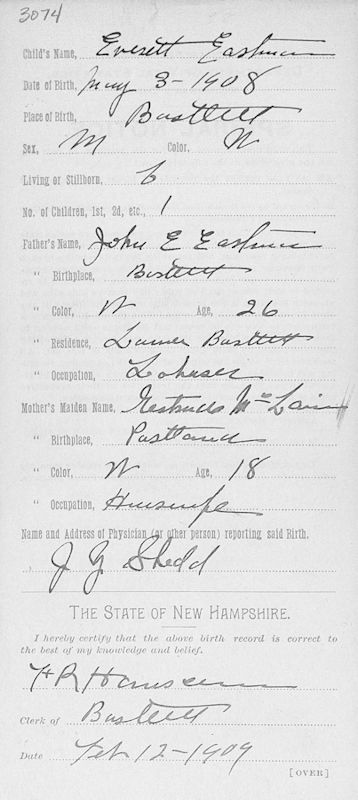 3074
Child's Name, Everett Eastman
Date of Birth, May 3 - 1908
Place of Birth, Bartlett
Sex, M Color, W
Living or Stillborn, L
No. of Children, 1st, 2d, etc., 1
Father's Name, John E Eastman
" Birthplace, Bartlett
" Color, W Age, 26
" Residence, Lower Bartlett
" Occupation, Laborer
Mother's Maiden Name, Gertrude McLain
" Birthplace, Portland
" Color, W Age, 18
" Occupation, Housewife
Name and Address of Physician (or other person) reporting said Birth.
J Shedd
THE STATE OF NEW HAMPSHIRE.
I hereby certify that the above birth record is correct to
the best of my knowledge and belief.
H R
Clerk of Bartlett
Date Feb 12 - 1909
[OVER]